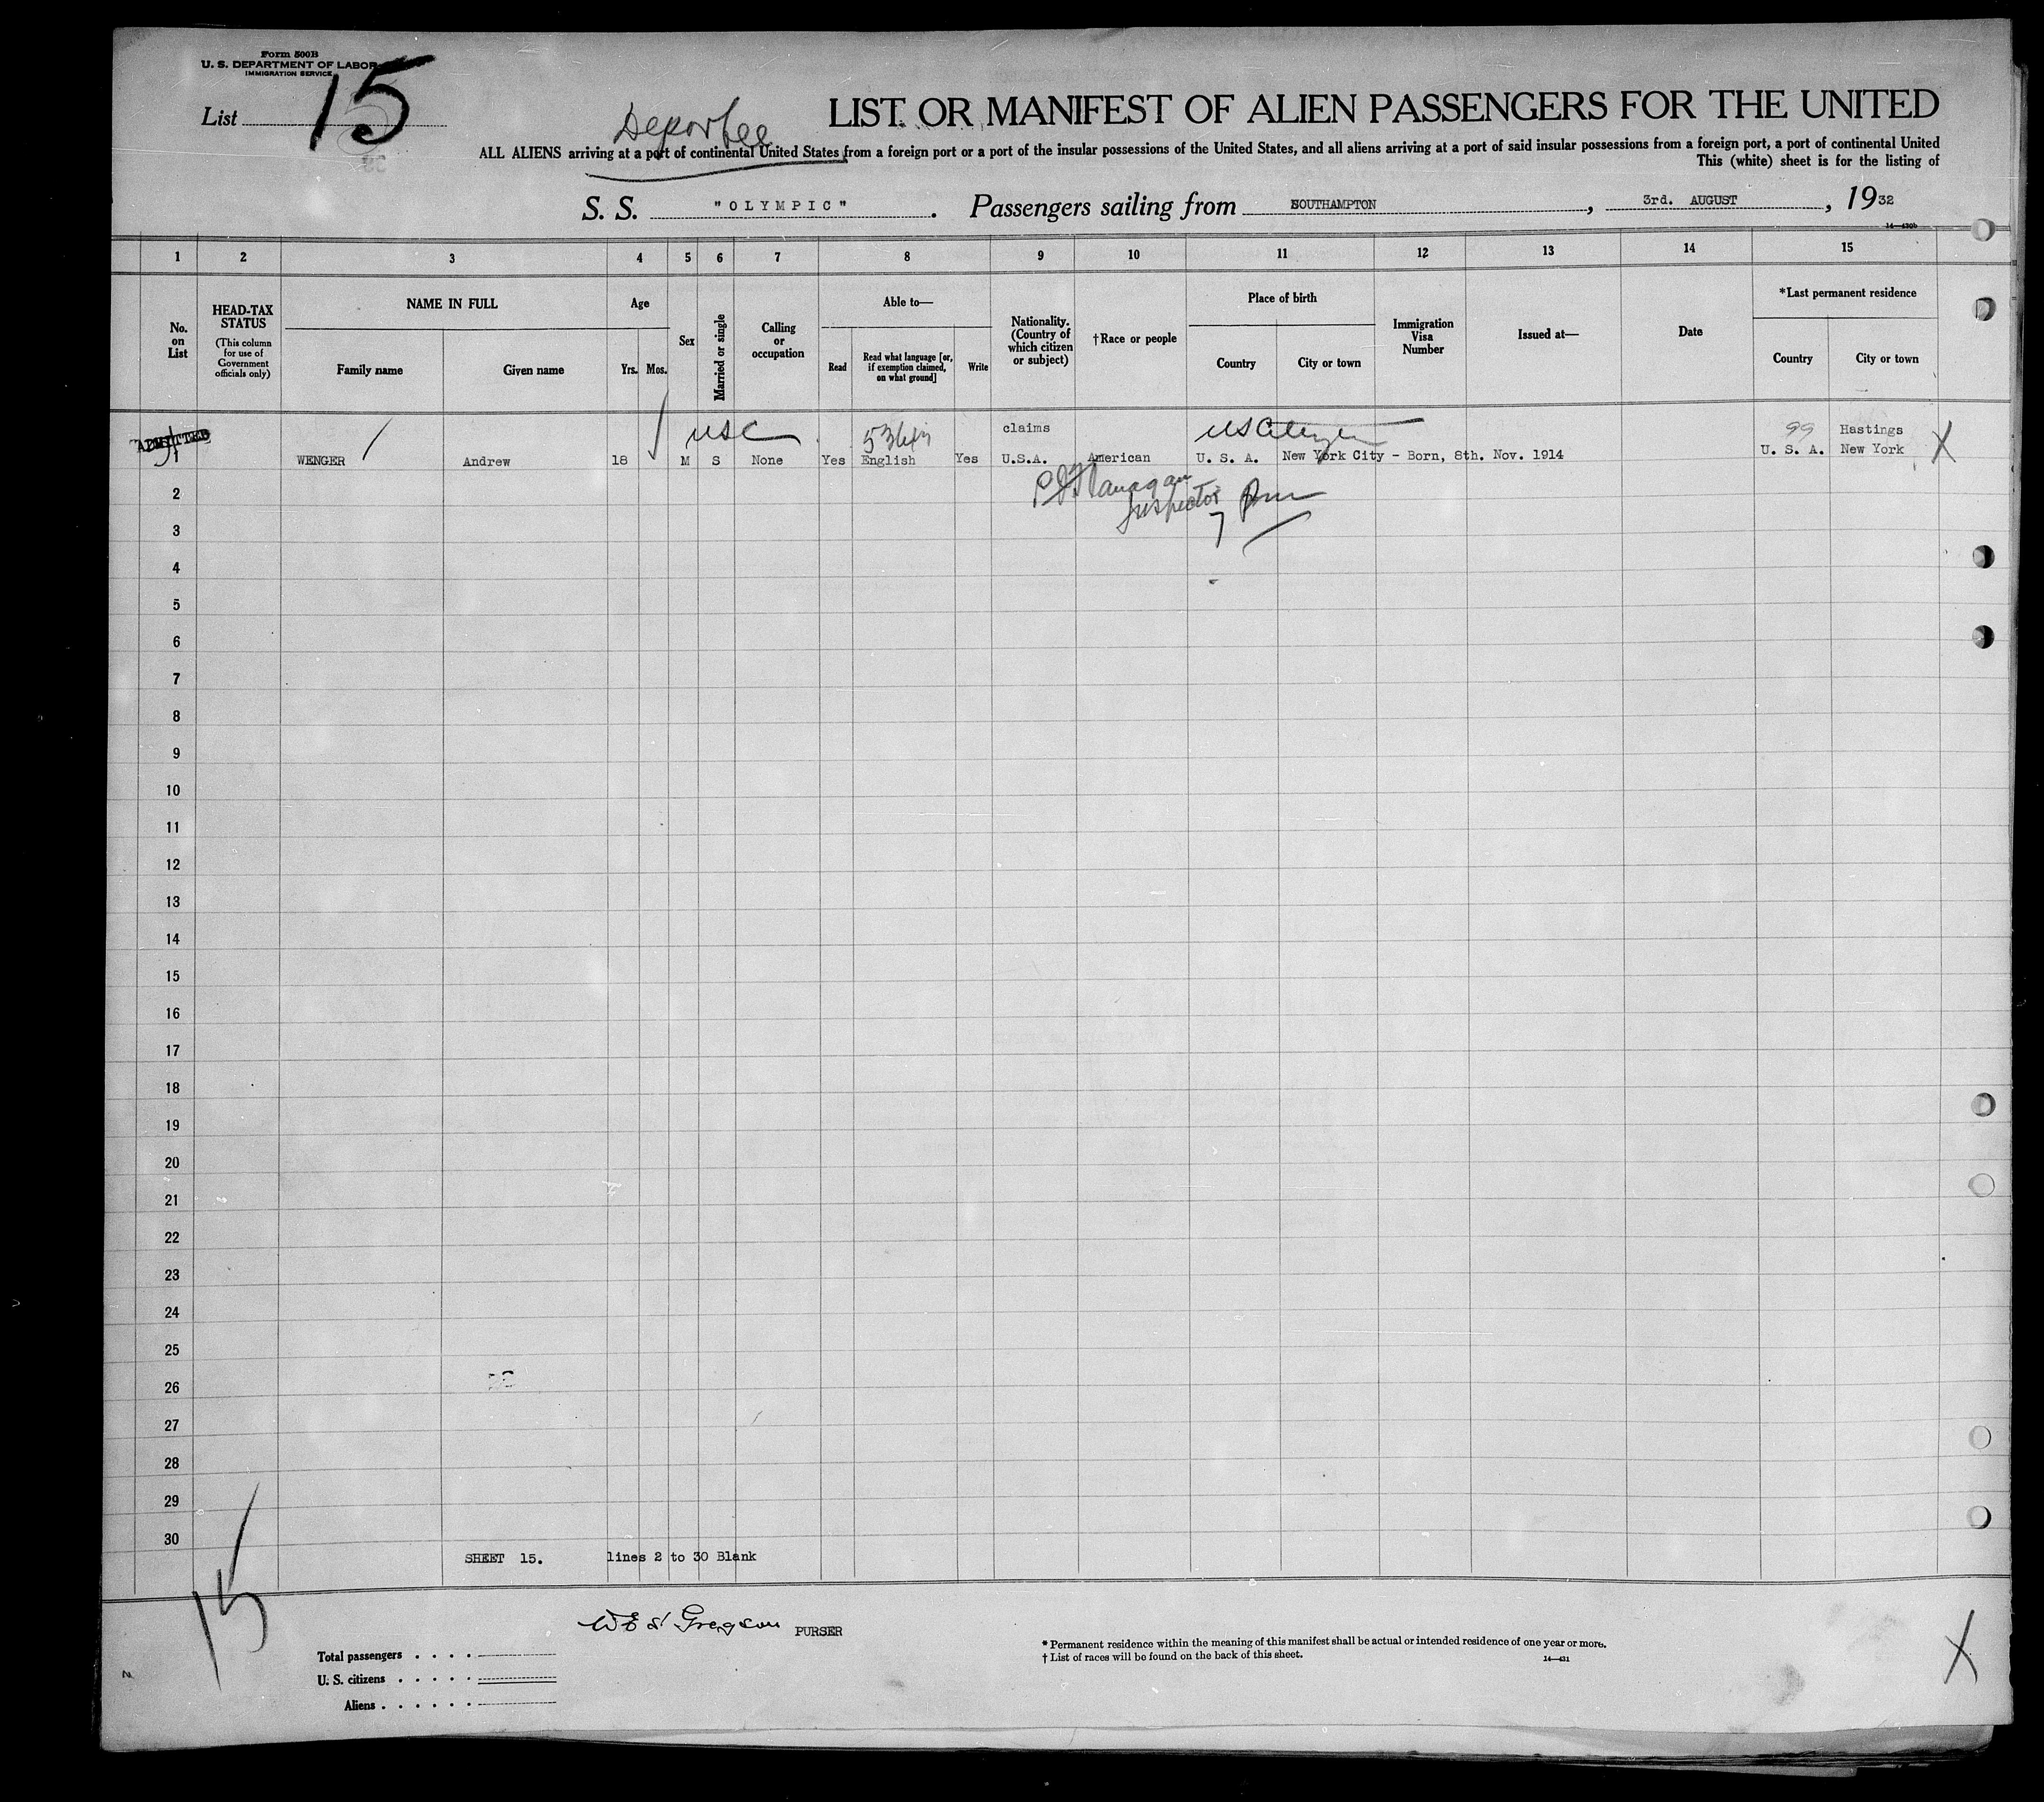 Form 500B
U. S. DEPARTMENT OF LABOR
IMMIGRATION SERVICE
List 15
Deportee
LIST OR MANIFEST OF ALIEN PASSENGERS FOR THE UNITED
ALL ALIENS arriving at a port of continental United States from a foreign port or a port of the insular possessions of the United States, and all aliens arriving at a port of said insular possessions from a foreign port, a port of continental United
This (white) sheet is for the listing of
S. S. "OLYMPIC". Passengers sailing from SOUTHAMPTON, 3rd. AUGUST, 1932
14—430b
1 2 3 4 5 6 7 8 9 10 11 12 13 14 15
No. on List
HEAD-TAX STATUS
(This column for use of Government officials only)
NAME IN FULL
Family name
Given name
Age
Yrs. Mos.
Sex
Married or single
Calling or occupation
Able to—
Read
Read what language [or, if exemption claimed, on what ground]
Write
Nationality. (Country of which citizen or subject)
†Race or people
Place of birth
Country
City or town
Immigration Visa Number
Issued at—
Date
*Last permanent residence
Country
City or town
ADMITTED
USC
claims
US Citizen
99
Hastings
1 WENGER Andrew 18 M S None Yes English Yes U.S.A. American U. S. A. New York City - Born, 8th. Nov. 1914 U. S. A. New York X
Flanagan
Inspector
2
3
4
5
6
7
8
9
10
11
12
13
14
15
16
17
18
19
20
21
22
23
24
25
26
27
28
29
30
SHEET 15. lines 2 to 30 Blank
15
Gregson PURSER
Total passengers
U. S. citizens
Aliens
* Permanent residence within the meaning of this manifest shall be actual or intended residence of one year or more.
† List of races will be found on the back of this sheet.
14—431
X